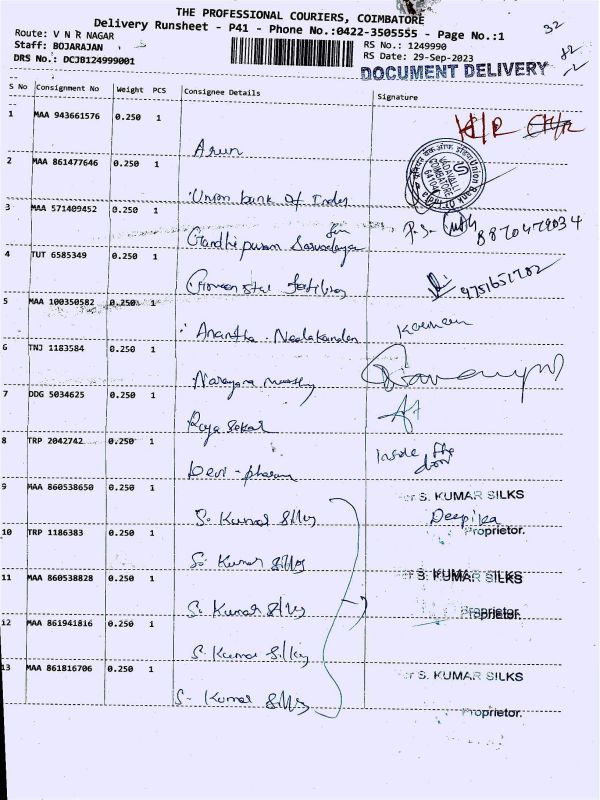 THE PROFESSIONAL COURIERS, COIMBATORE
Delivery Runsheet - P41 - Phone No.:0422-3505555 - Page No.:1
32
Route: V N R NAGAR
RS No.: 1249990
Staff: BOJARAJAN
RS Date: 29-Sep-2023
DRS No.: DCJB124999001
DOCUMENT DELIVERY
S No Consignment No Weight PCS Consignee Details Signature
1 MAA 943661576 0.250 1
Arun
2 MAA 861477646 0.250 1
Union bank of India
3 MAA 571409452 0.250 1
Gandhipuram Sarvodaya
4 TUT 6585349 0.250 1
5 MAA 100350582 0.250 1
Anantha Neelakandan
6 TNJ 1183584 0.250 1
Narayana
7 DDG 5034625 0.250 1
8 TRP 2042742 0.250 1
Inside the door
9 MAA 860538650 0.250 1
S. KUMAR SILKS
S. Kumar Silks
Deepika
Proprietor.
10 TRP 1186383 0.250 1
S. Kumar Silks
11 MAA 860538828 0.250 1
S. KUMAR SILKS
S. Kumar Silks
Proprietor.
12 MAA 861941816 0.250 1
S. Kumar Silks
13 MAA 861816706 0.250 1
S. KUMAR SILKS
S. Kumar Silks
Proprietor.